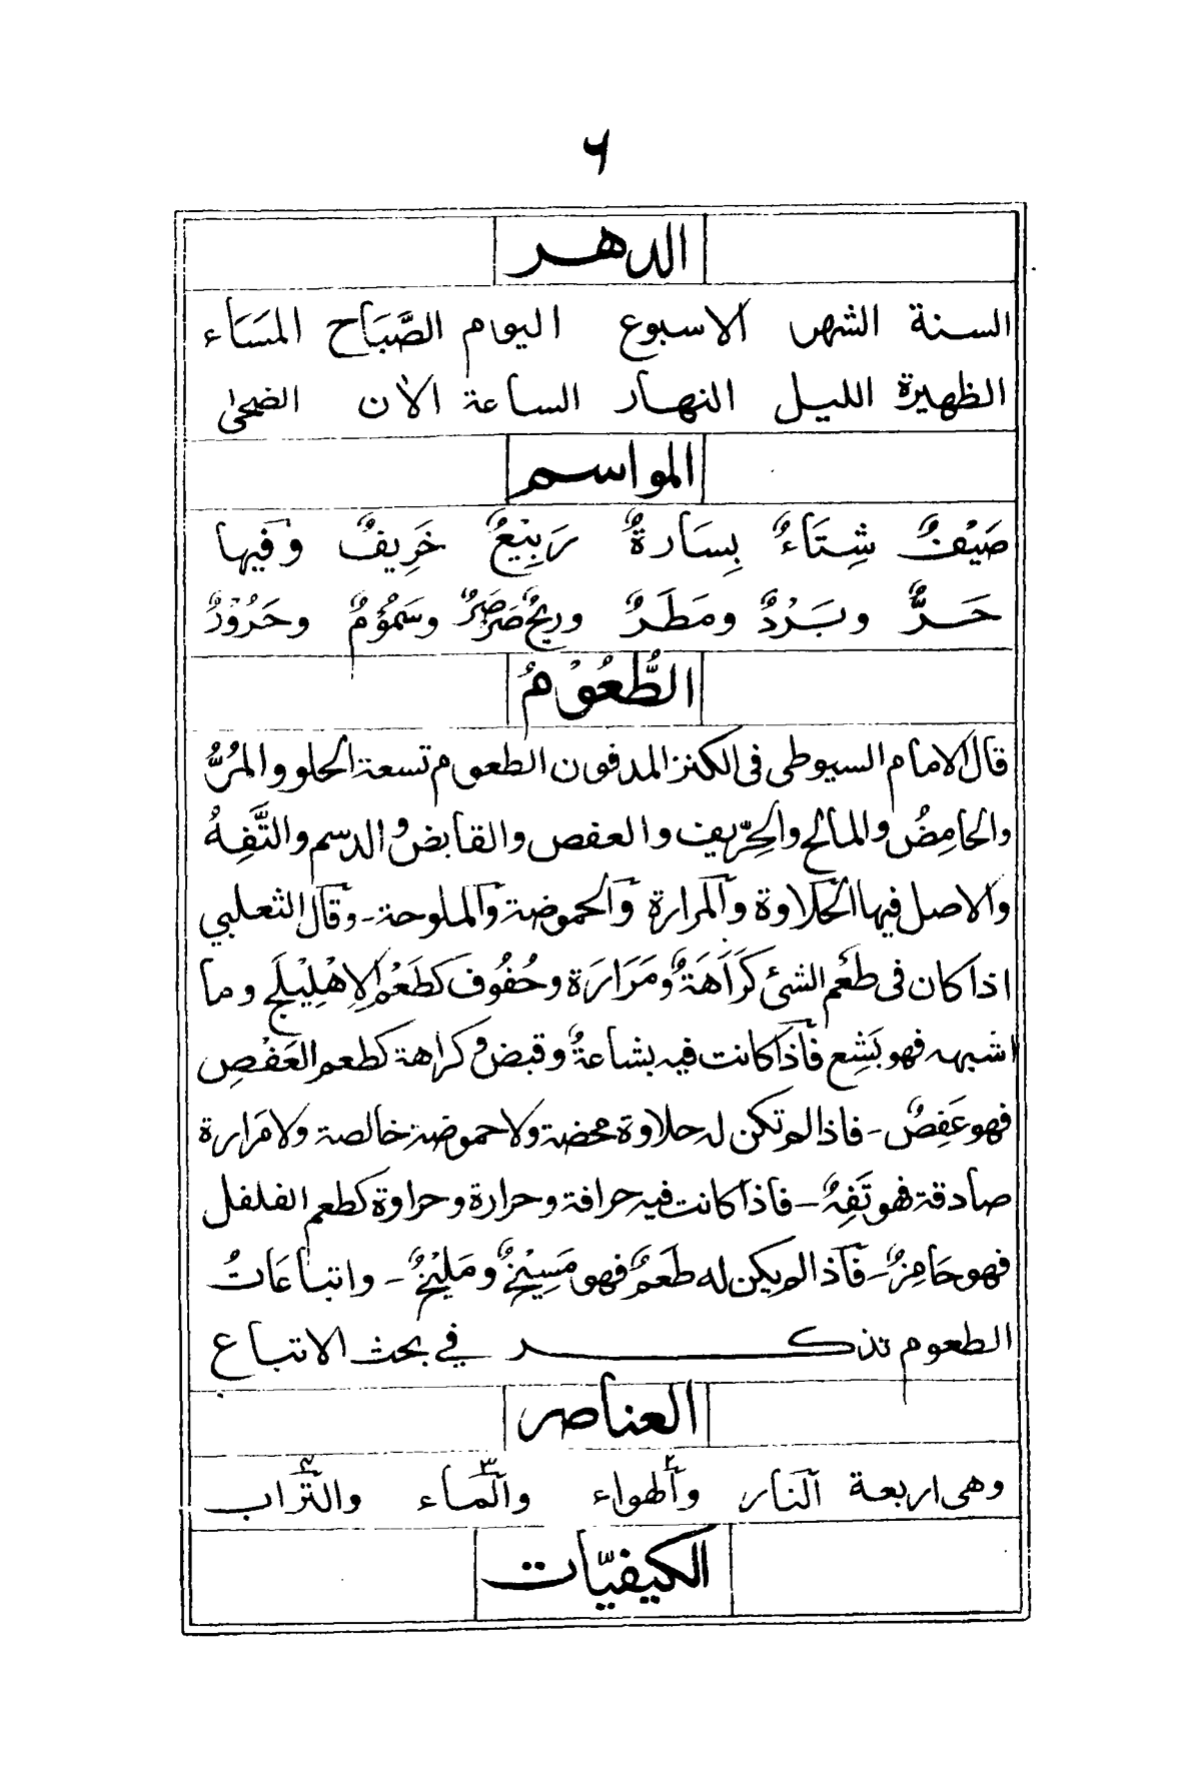 ۶
الدهر
السنة الشهر الاسبوع اليوم الصَّبَاح المَسَاء
الظهيرة الليل النهار الساعة الاٰن الضحیٰ
المواسم
صَيْفٌ شِتَاءٌ بِسَارةٌ رَبِيْعٌ خَرِيفٌ وفيها
حَرٌّ وبَرْدٌ ومَطَرٌ وريحٌ صَرصَرٌ وسَمُوْمٌ وحَرُوْرٌ
الطُّعُوْمُ
قال الامام السيوطى فى الكنز المدفون الطعوم تسعة الحلو والمُرُّ
والحامِضُ والمالح والحِرّيف والعفص والقابض والدسم والتَّفِهُ
والاصل فيها الحلاوة والمرارة والحموضة والملوحة۔ وقال الثعلبي
اذا كان فى طَعْمِ الشئ كَرَاهَةٌ ومَرَارَة وحُفُوف كطَعْمِ الاِهْلِيْلَج وما
اشبهه فهو بَشِع فاذا كانت فيه بشاعةٌ وقبض وكراهة كطعم العَفْصِ
فهو عَفِصٌ۔ فاذا لم تكن له حلاوة محضة ولا حموضة خالصة ولا مَرارة
صادقة فهو تَفِهٌ۔ فاذا كانت فيه حرافة وحرارة وحراوة كطعم الفلفل
فهو حَامِزٌ۔ فاذا لم يكن له طَعمٌ فهو مَسِيْخٌ ومَلِيْخٌ۔ واتباعَاتُ
الطعوم تذكر في بحث الاتباع
العناصر
وهى اربعة النار والهواء والماء والتراب
الكيفيّات